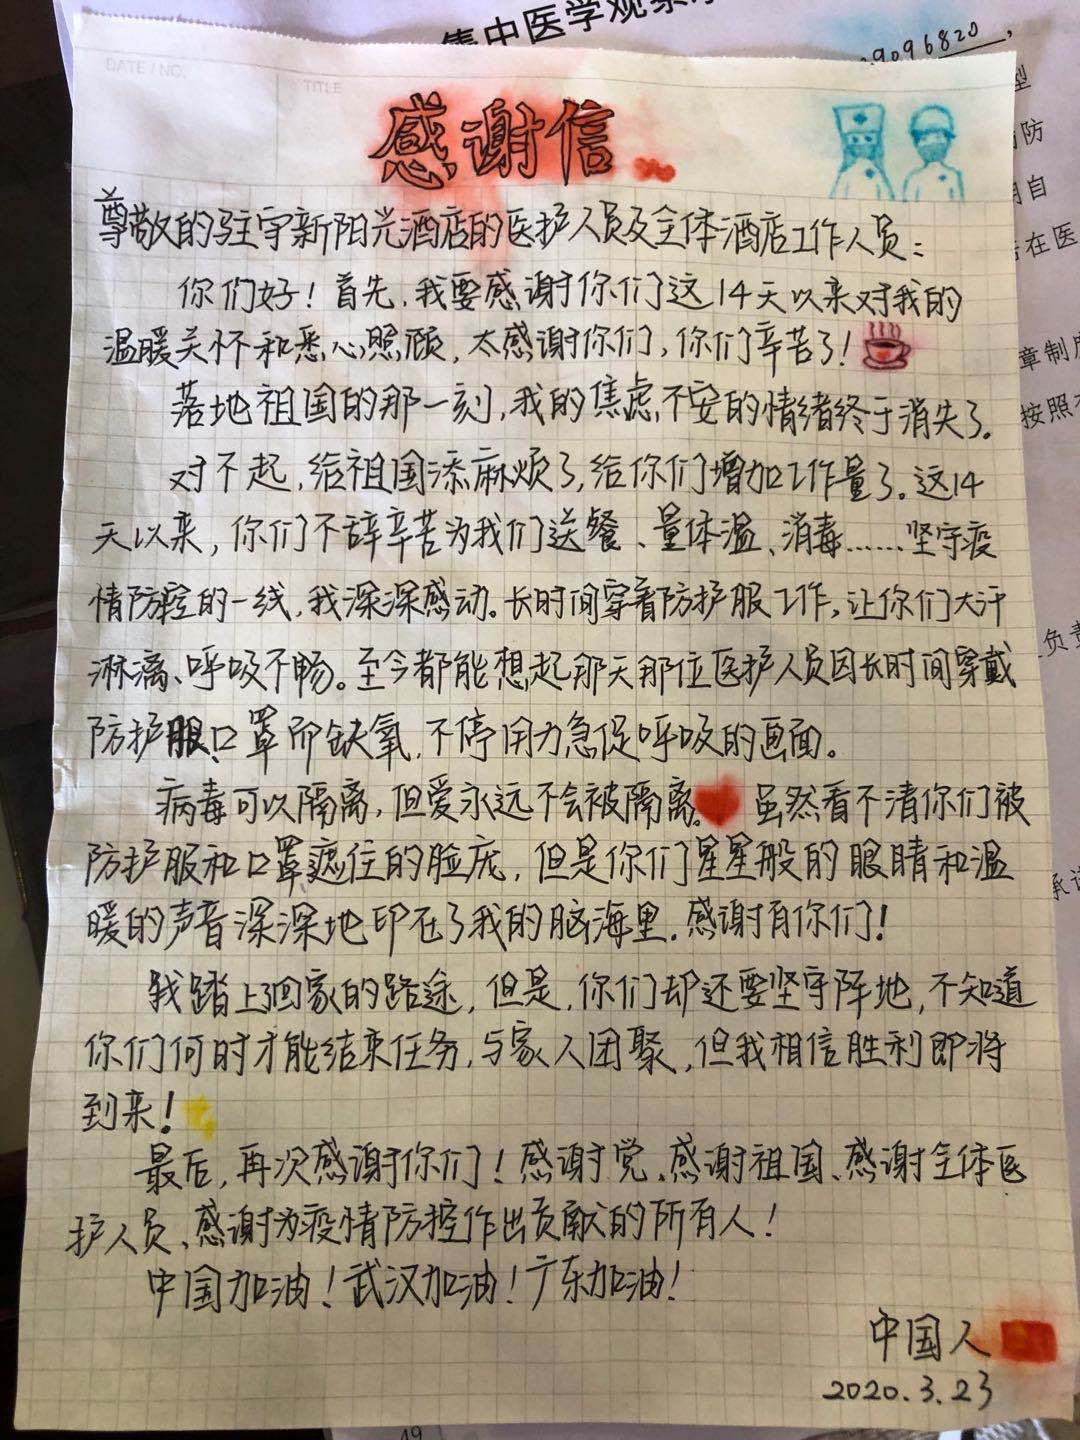 集中医学观察
9096820
DATE / NO.
TITLE
感谢信
尊敬的驻宇新阳光酒店的医护人员及全体酒店工作人员：
你们好！首先，我要感谢你们这14天以来对我的
温暖关怀和悉心照顾，太感谢你们，你们辛苦了！
落地祖国的那一刻，我的焦虑不安的情绪终于消失了。
对不起，给祖国添麻烦了，给你们增加工作量了。这14
天以来，你们不辞辛苦为我们送餐、量体温、消毒……坚守疫
情防控的一线，我深深感动。长时间穿着防护服工作，让你们大汗
淋漓、呼吸不畅。至今都能想起那天那位医护人员因长时间穿戴
防护服、口罩而缺氧，不停用力急促呼吸的画面。
病毒可以隔离，但爱永远不会被隔离。虽然看不清你们被
防护服和口罩遮住的脸庞，但是你们星星般的眼睛和温
暖的声音深深地印在了我的脑海里。感谢有你们！
我踏上了回家的路途，但是，你们却还要坚守阵地，不知道
你们何时才能结束任务，与家人团聚，但我相信胜利即将
到来！
最后，再次感谢你们！感谢党、感谢祖国、感谢全体医
护人员、感谢为疫情防控作出贡献的所有人！
中国加油！武汉加油！广东加油！
中国人
2020.3.23
型
防
自
在医
章制度
按照
负责
承诺
49